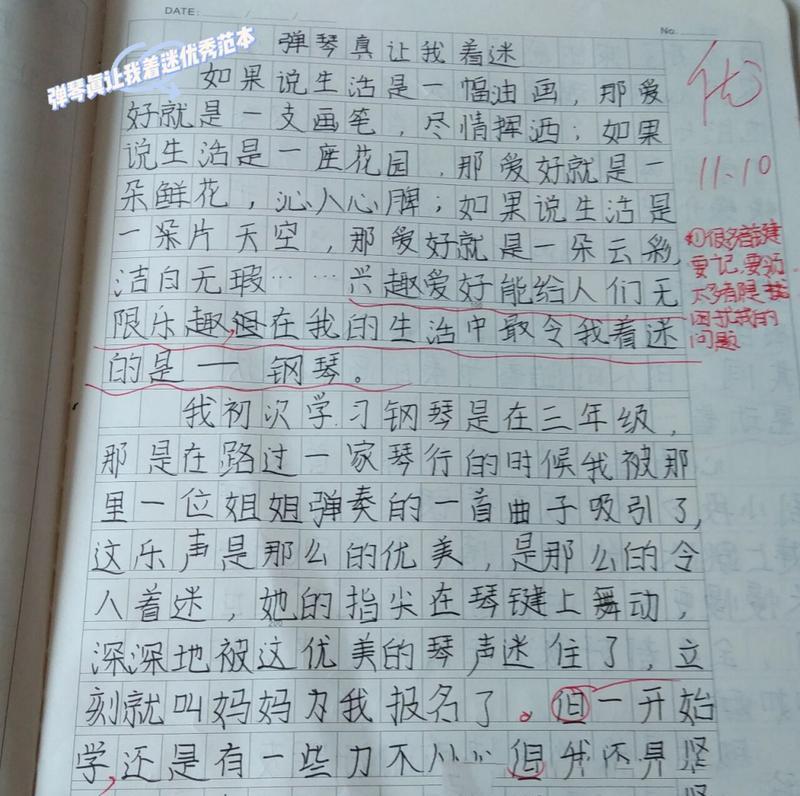 DATE:
No.
弹琴真让我着迷优秀范本
弹琴真让我着迷
如果说生活是一幅油画，那爱
好就是一支画笔，尽情挥洒；如果
说生活是一座花园，那爱好就是一
朵鲜花，沁人心脾；如果说生活是
一朵片天空，那爱好就是一朵云彩，
洁白无瑕……兴趣爱好能给人们无
限乐趣，但在我的生活中最令我着迷
的是——钢琴。
我初次学习钢琴是在三年级，
那是在路过一家琴行的时候我被那
里一位姐姐弹奏的一首曲子吸引了，
这乐声是那么的优美，是那么的令
人着迷，她的指尖在琴键上舞动，
深深地被这优美的琴声迷住了，立
刻就叫妈妈为我报名了。但一开始
学，还是有一些力不从心 但我还是坚
优
11.10
要记，要
困扰我的
问题